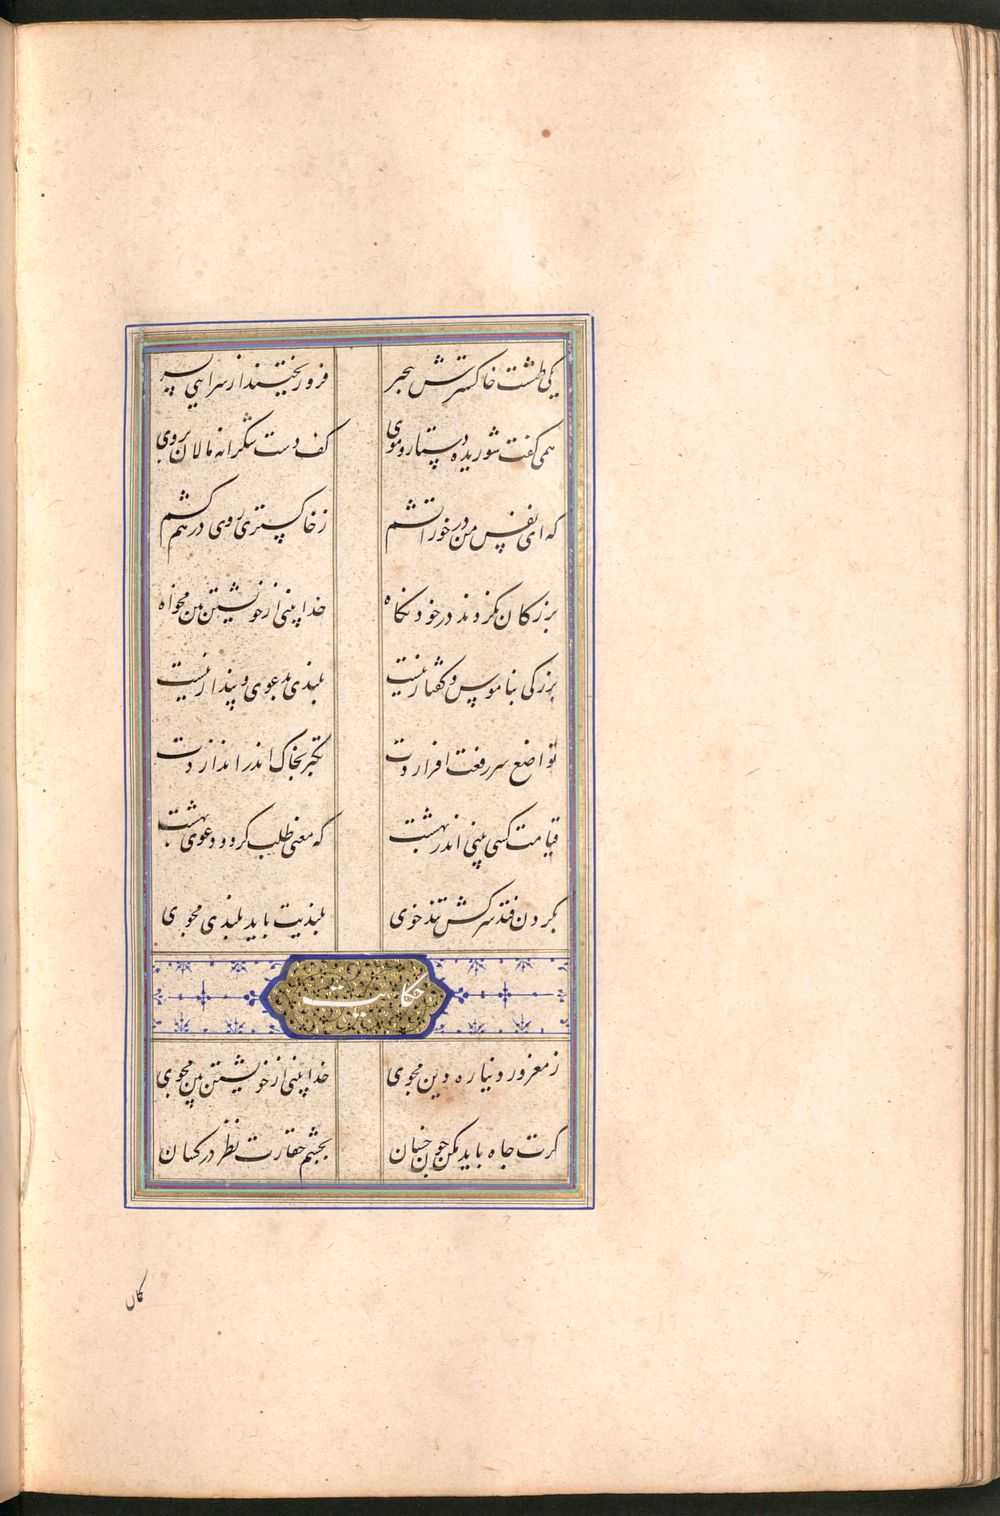 یکی طشت خاکسترش بیخبر فرو ریختند از سرایی بسر
همی گفت شوریده دستار و موی کف دست شکرانه مالان بروی
که ای نفس من در خور آتشم ز خاکستری روی درهم کشم
بزرگان نکردند در خود نگاه خدا بینی از خویشتن بین مخواه
بزرگی بناموس و گفتار نیست بلندی بدعوی و پندار نیست
تواضع سر رفعت افرازدت تکبر بخاک اندر اندازدت
قیامت کسی بینی اندر بهشت که معنی طلب کرد و دعوی بهشت
بگردن فتد سرکش تندخوی بلندیت باید بلندی مجوی
حکایت
ز مغرور دنیا ره دین مجوی خدا بینی از خویشتن بین مجوی
گرت جاه باید مکن چون خسان بچشم حقارت نظر در کسان
کمان